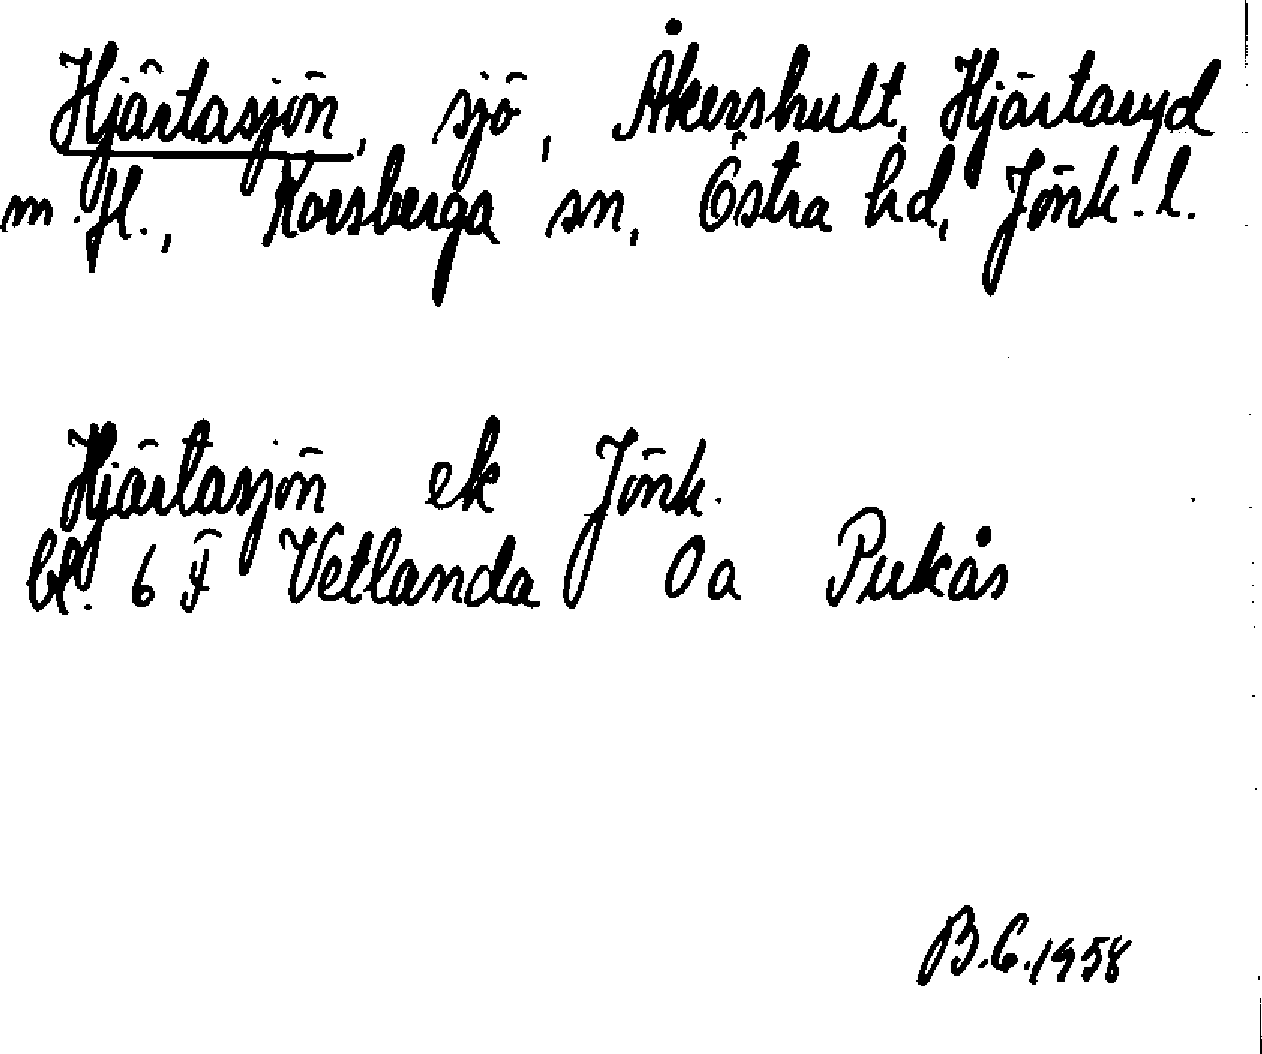 Hjärtasjön, sjö, Åkershult, Hjärtaryd
m.fl., Korsberga sn, Östra hd, Jönk. l.
Hjärtasjön ek Jönk.
bl. 6 F Vetlanda 0a Pukås
B.G.1958